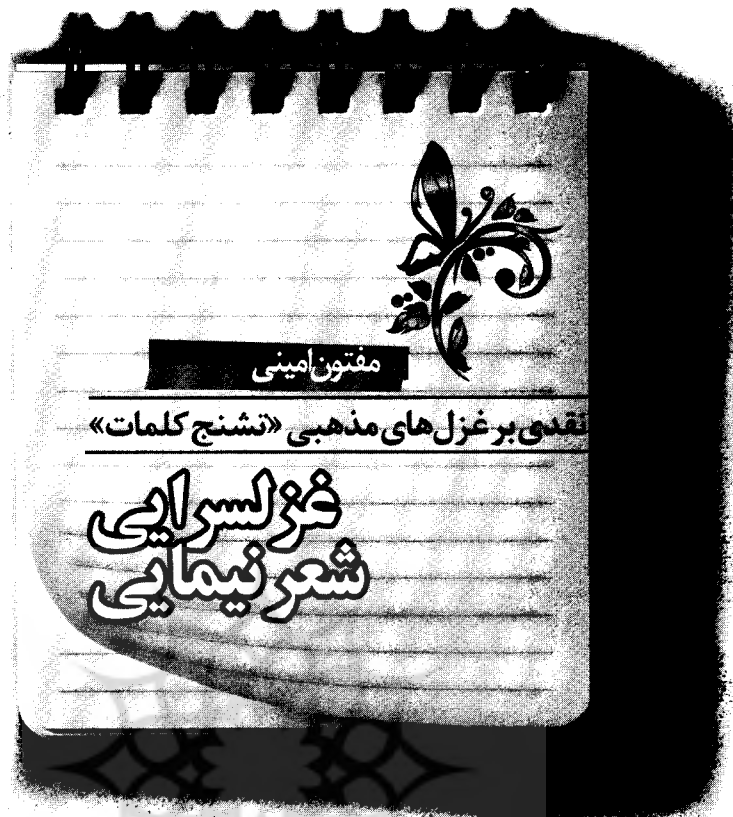 مفتون امینی
نقدی بر غزل‌های مذهبی «تشنج کلمات»
غزلسرایی
شعر نیمایی